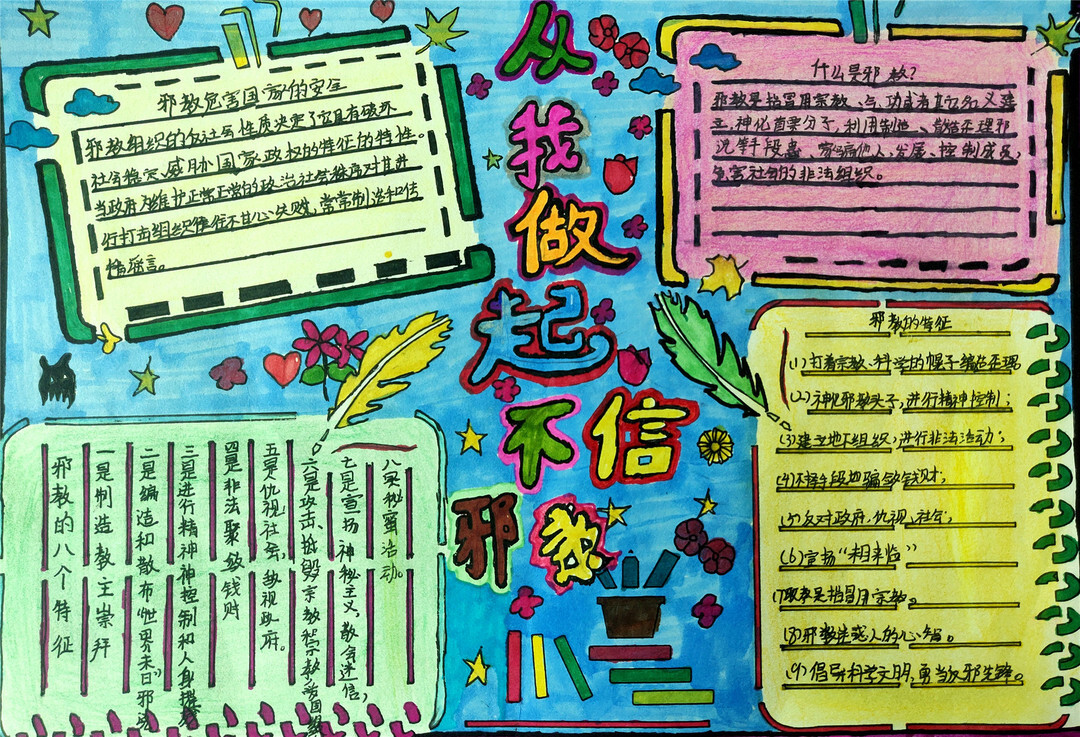 从我做起不信邪教
邪教危害国家的安全
邪教组织的反社会性质决定了它具有破坏
社会稳定、威胁国家政权的特征的特性。
当政府为维护正常正常的政治社会秩序对其进
行打击组织便信不甘心失败,常常制造和传
播谣言。
什么是邪教?
邪教是指冒用宗教、气功或者其它名义建
立,神化首要分子,利用制他、散造歪理邪
说等手段蛊、惑骗他人,发展、控制成员,
危害社会的非法组织。
邪教的特征
(1)打着宗教、科学的幌子编造歪理。
(2)神化邪教头子,进行精神控制;
(3)建立地下组织,进行非法活动;
(4)不择手段地骗敛钱财,
(5)反对政府,仇视社会;
(6)宣扬“末来临”
(7)教是指冒用宗教。
(8)邪教迷惑人的心智。
(9)倡导科学文明,勇当反邪先锋。
邪教的八个特征
一是制造教主崇拜
二是编造和散布“世界末日”邪说
三是进行精神神控制和人身摧残
四是非法聚敛钱财
五是仇视社会,敌视政府。
六是攻击、诋毁宗教和宗教爱国组
七是宣扬神秘主义,散布迷信,
八是秘密活动。